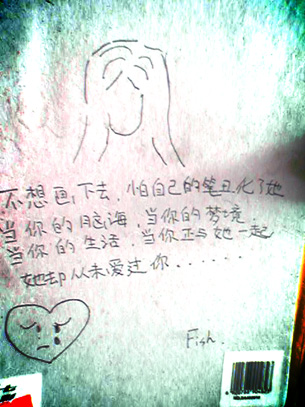 不想画下去，怕自己的笔丑化了她
当你的脑海，当你的梦境，
当你的生活，当你正与她一起
她却从未爱过你......
Fish.